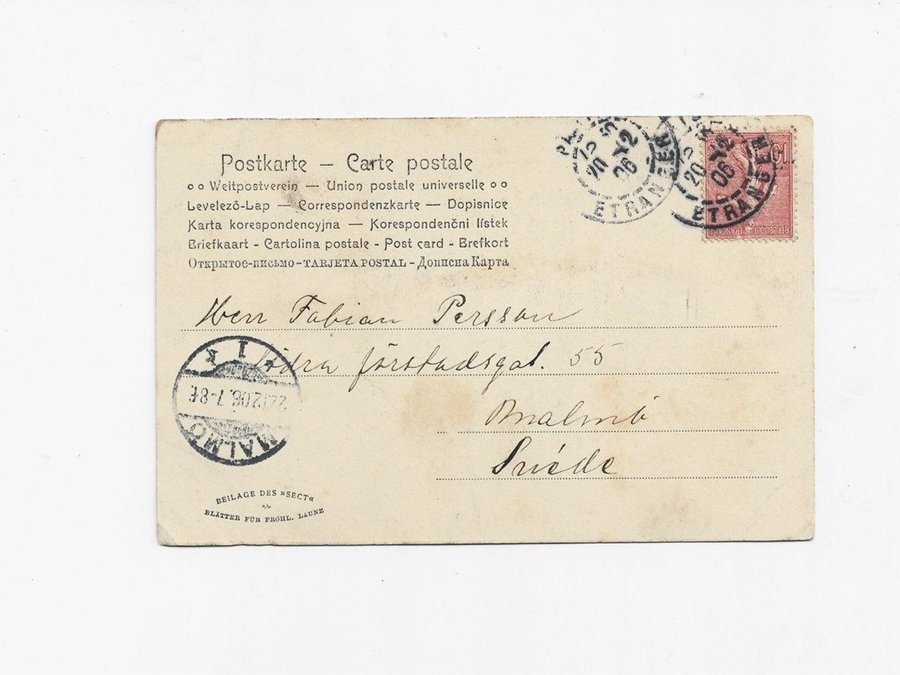 Postkarte — Carte postale
Weltpostverein — Union postale universelle
Levelező-Lap — Correspondenzkarte — Dopisnice
Karta korespondencyjna — Korespondenční lístek
Briefkaart - Cartolina postale - Post card - Brefkort
Открытое-письмо - TARJETA POSTAL - Дописна Карта
ETRANGER
20 12 06
ETRANGER
20 12 06
15
Herr Fabian Persson
Södra förstadsgat. 55
Malmö
Suéde
1 K
22.12.06.7-8 f.
MALMÖ
BEILAGE DES »SECT«
BLÄTTER FÜR FRÖHL. LAUNE